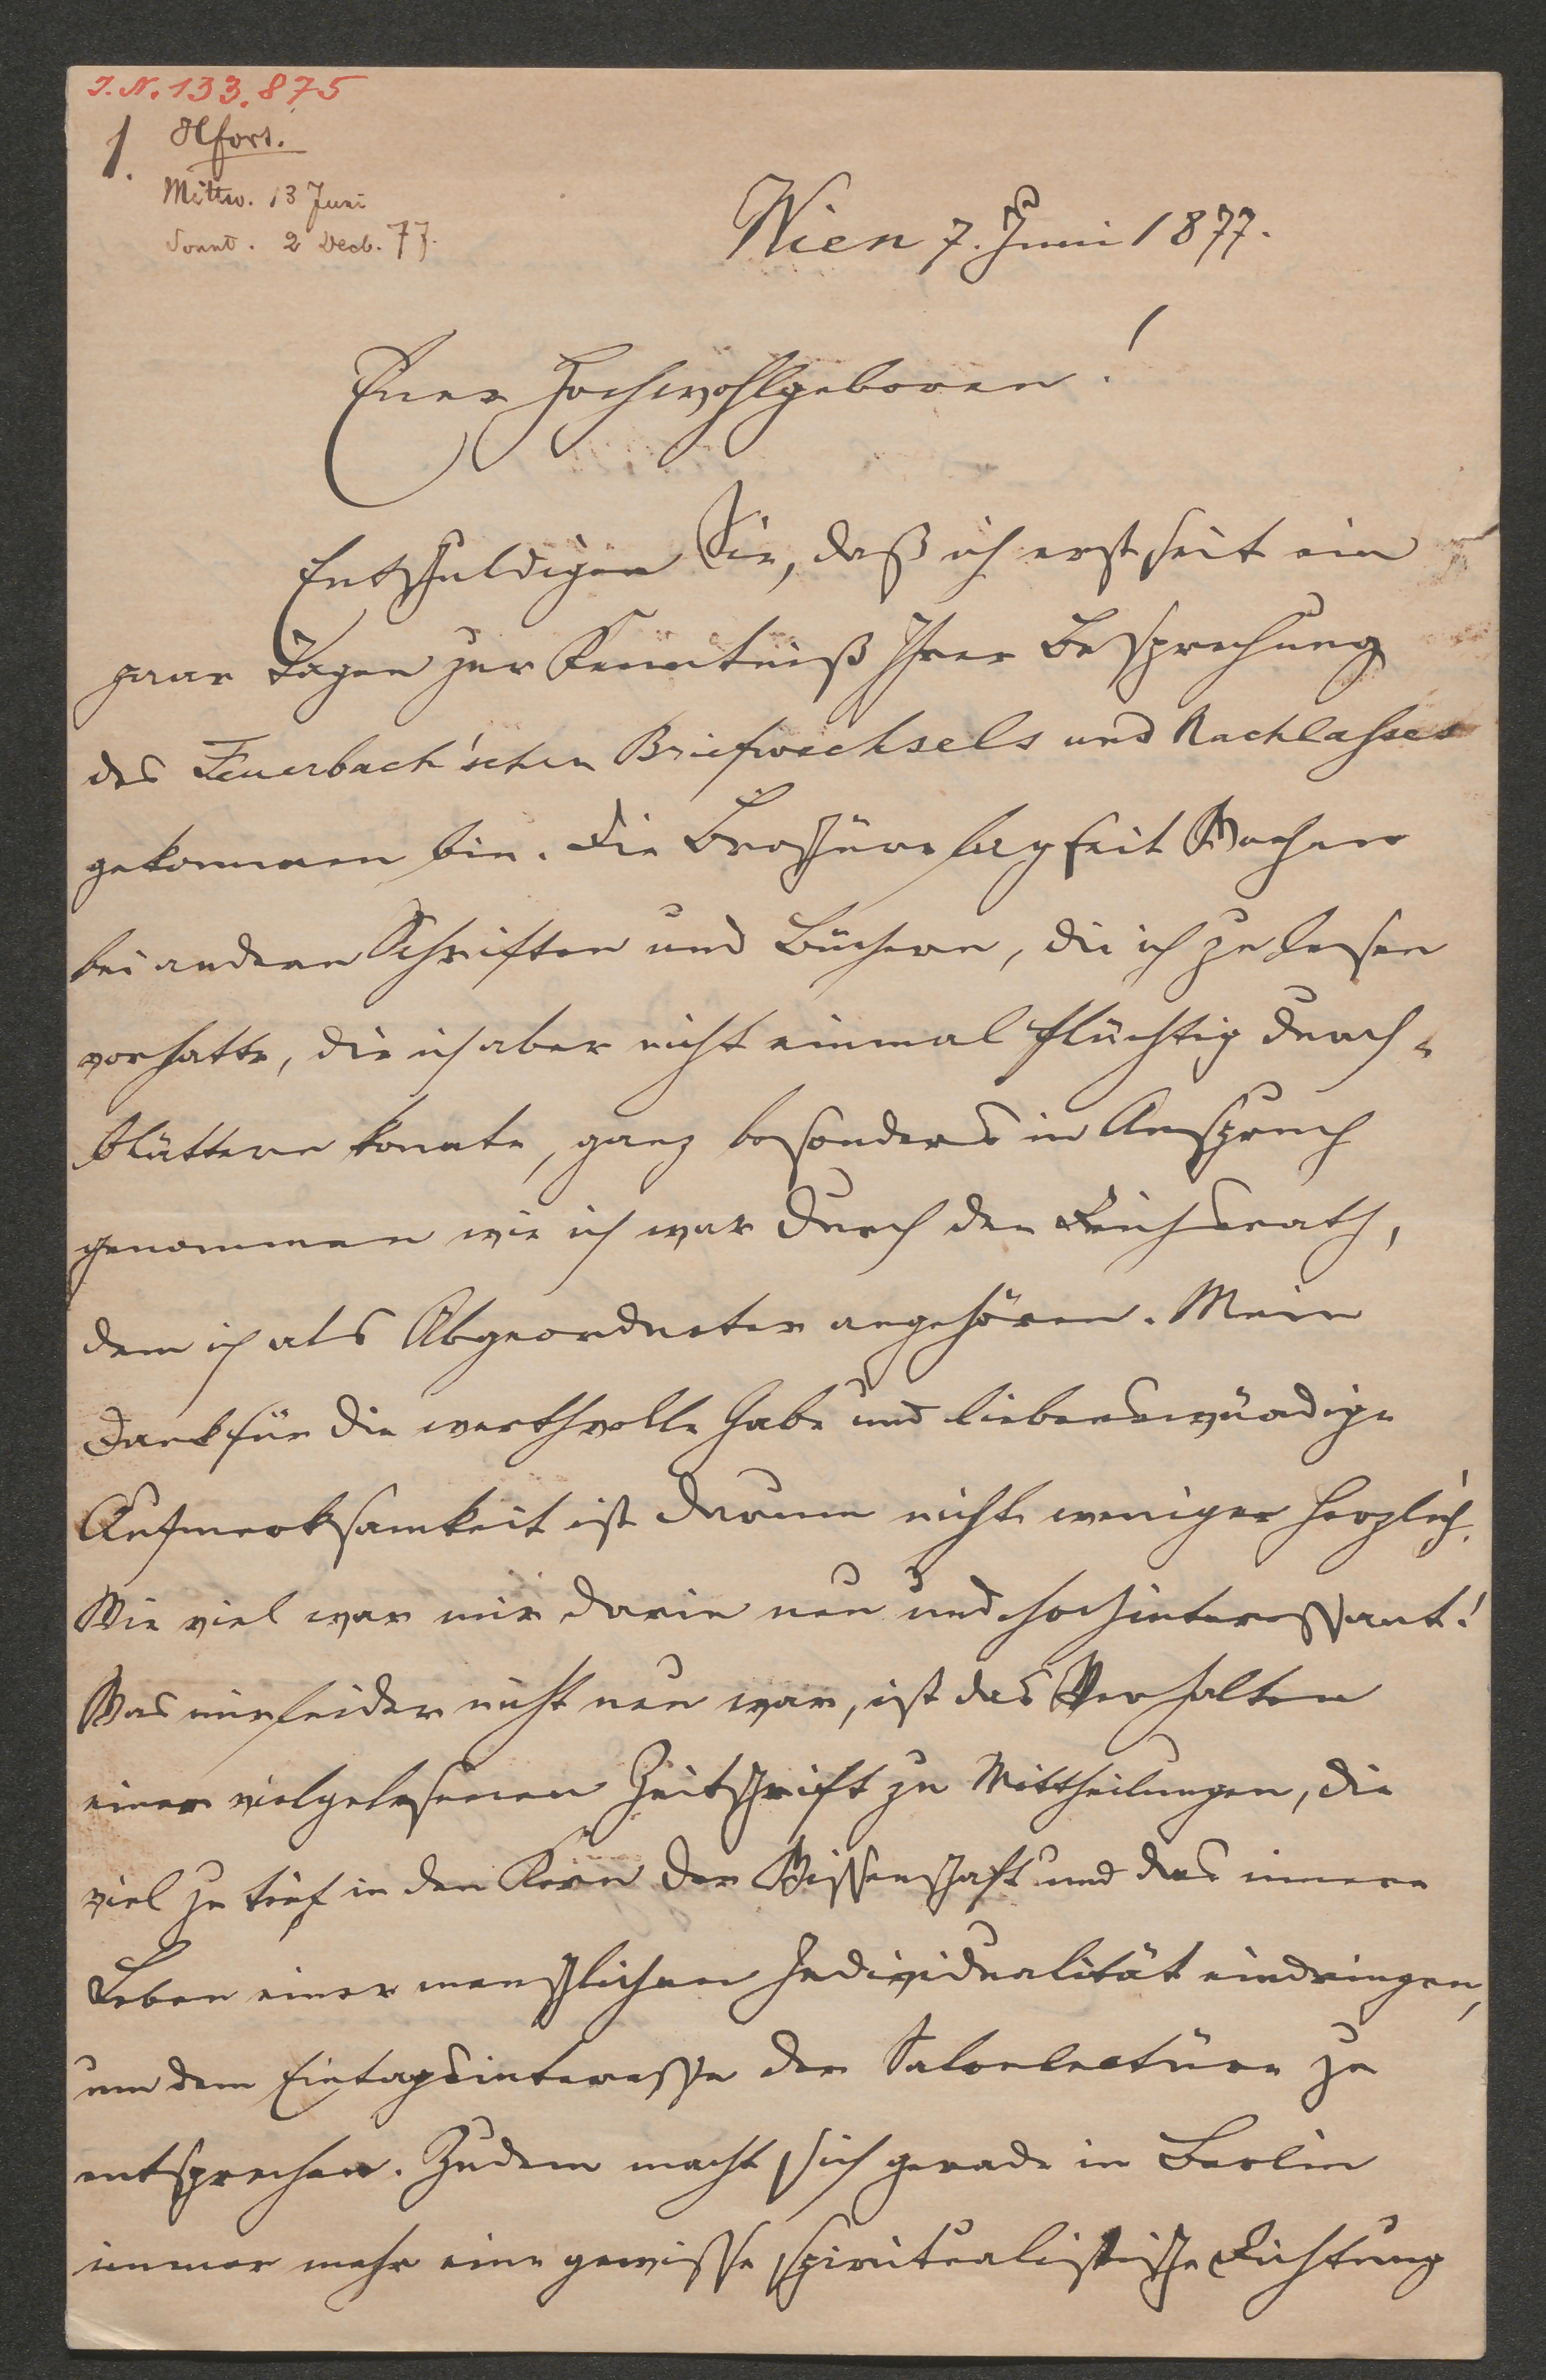 I. N. 133.875
1. Hfort.
Mittw. 13 Juni
Sonnt. 2 Decb. 77.
Wien 7. Juni 1877.
Euer Hochwohlgeboren!
Entschuldigen Sie, daß ich erst seit ein
paar Tagen zur Kenntniß Ihrer Besprechung
des Feuerbach'schen Briefwechsels und Nachlasses
gekommen bin. Die Broschüre lag seit Wochen
bei andern Schriften und Büchern, die ich zu lesen
vorhatte, die ich aber nicht einmal flüchtig durch-
blättern konnte, ganz besonders in Anspruch
genommen wie ich war durch den Reichsrath,
dem ich als Abgeordneter angehöre. Mein
Dank für die werthvolle Gabe und liebenswürdige
Aufmerksamkeit ist darum nicht weniger herzlich.
Wie viel war mir darin neu und hochinteressant!
Was mir leider nicht neu war, ist das Verhalten
einer vielgelesenen Zeitschrift zu Mittheilungen, die
viel zu tief in den Kern der Wissenschaft und das innere
Leben einer menschlichen Individualität eindringen,
um dem Eintagsinteresse der Salonlectüre zu
entsprechen. Zudem macht sich gerade in Berlin
immer mehr eine gewisse spiritualistische Richtung